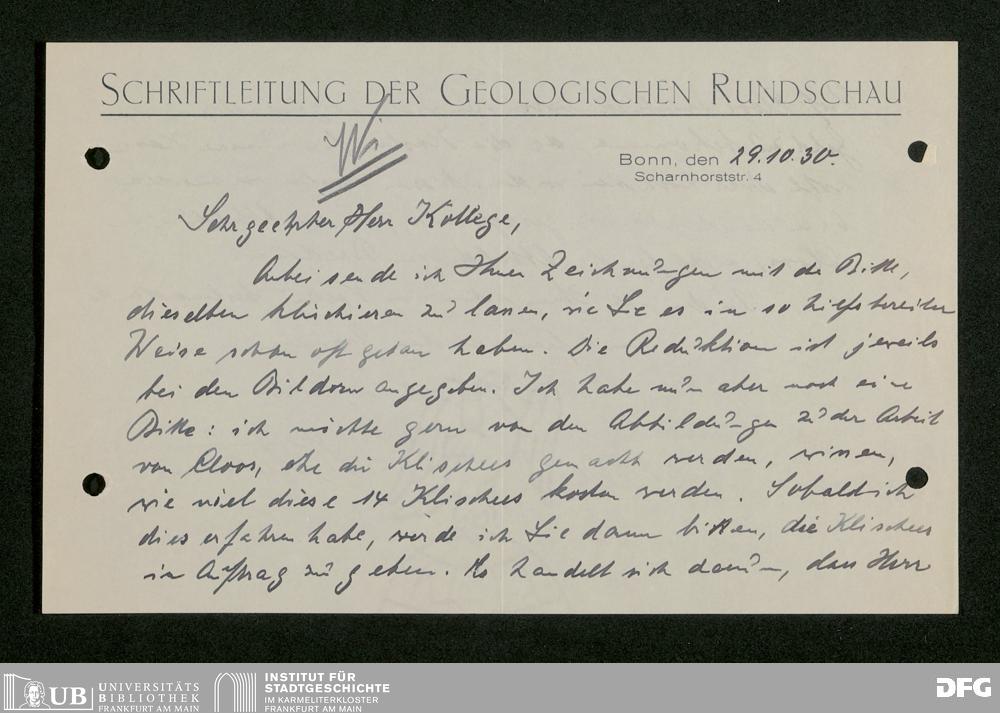 SCHRIFTLEITUNG DER GEOLOGISCHEN RUNDSCHAU
Wi
Bonn, den 29.10.30.
Scharnhorststr. 4
Sehr geehrter Herr Kollege,
Anbei sende ich Ihnen Zeichnungen mit der Bitte,
dieselben klischieren zu lassen, wie Sie es in so hilfsbereiter
Weise schon oft getan haben. Die Reduktion ist jeweils
bei den Bildern angegeben. Ich habe nun aber noch eine
Bitte: ich möchte gern von den Abbildungen zu der Arbeit
von Cloos, ehe die Klischees gemacht werden, wissen,
wie viel diese 14 Klischees kosten werden. Sobald ich
dies erfahren habe, werde ich Sie dann bitten, die Klischees
in Auftrag zu geben. Es handelt sich darum, dass Herr
UB UNIVERSITÄTS
BIBLIOTHEK
FRANKFURT AM MAIN
INSTITUT FÜR
STADTGESCHICHTE
IM KARMELITERKLOSTER
FRANKFURT AM MAIN
DFG